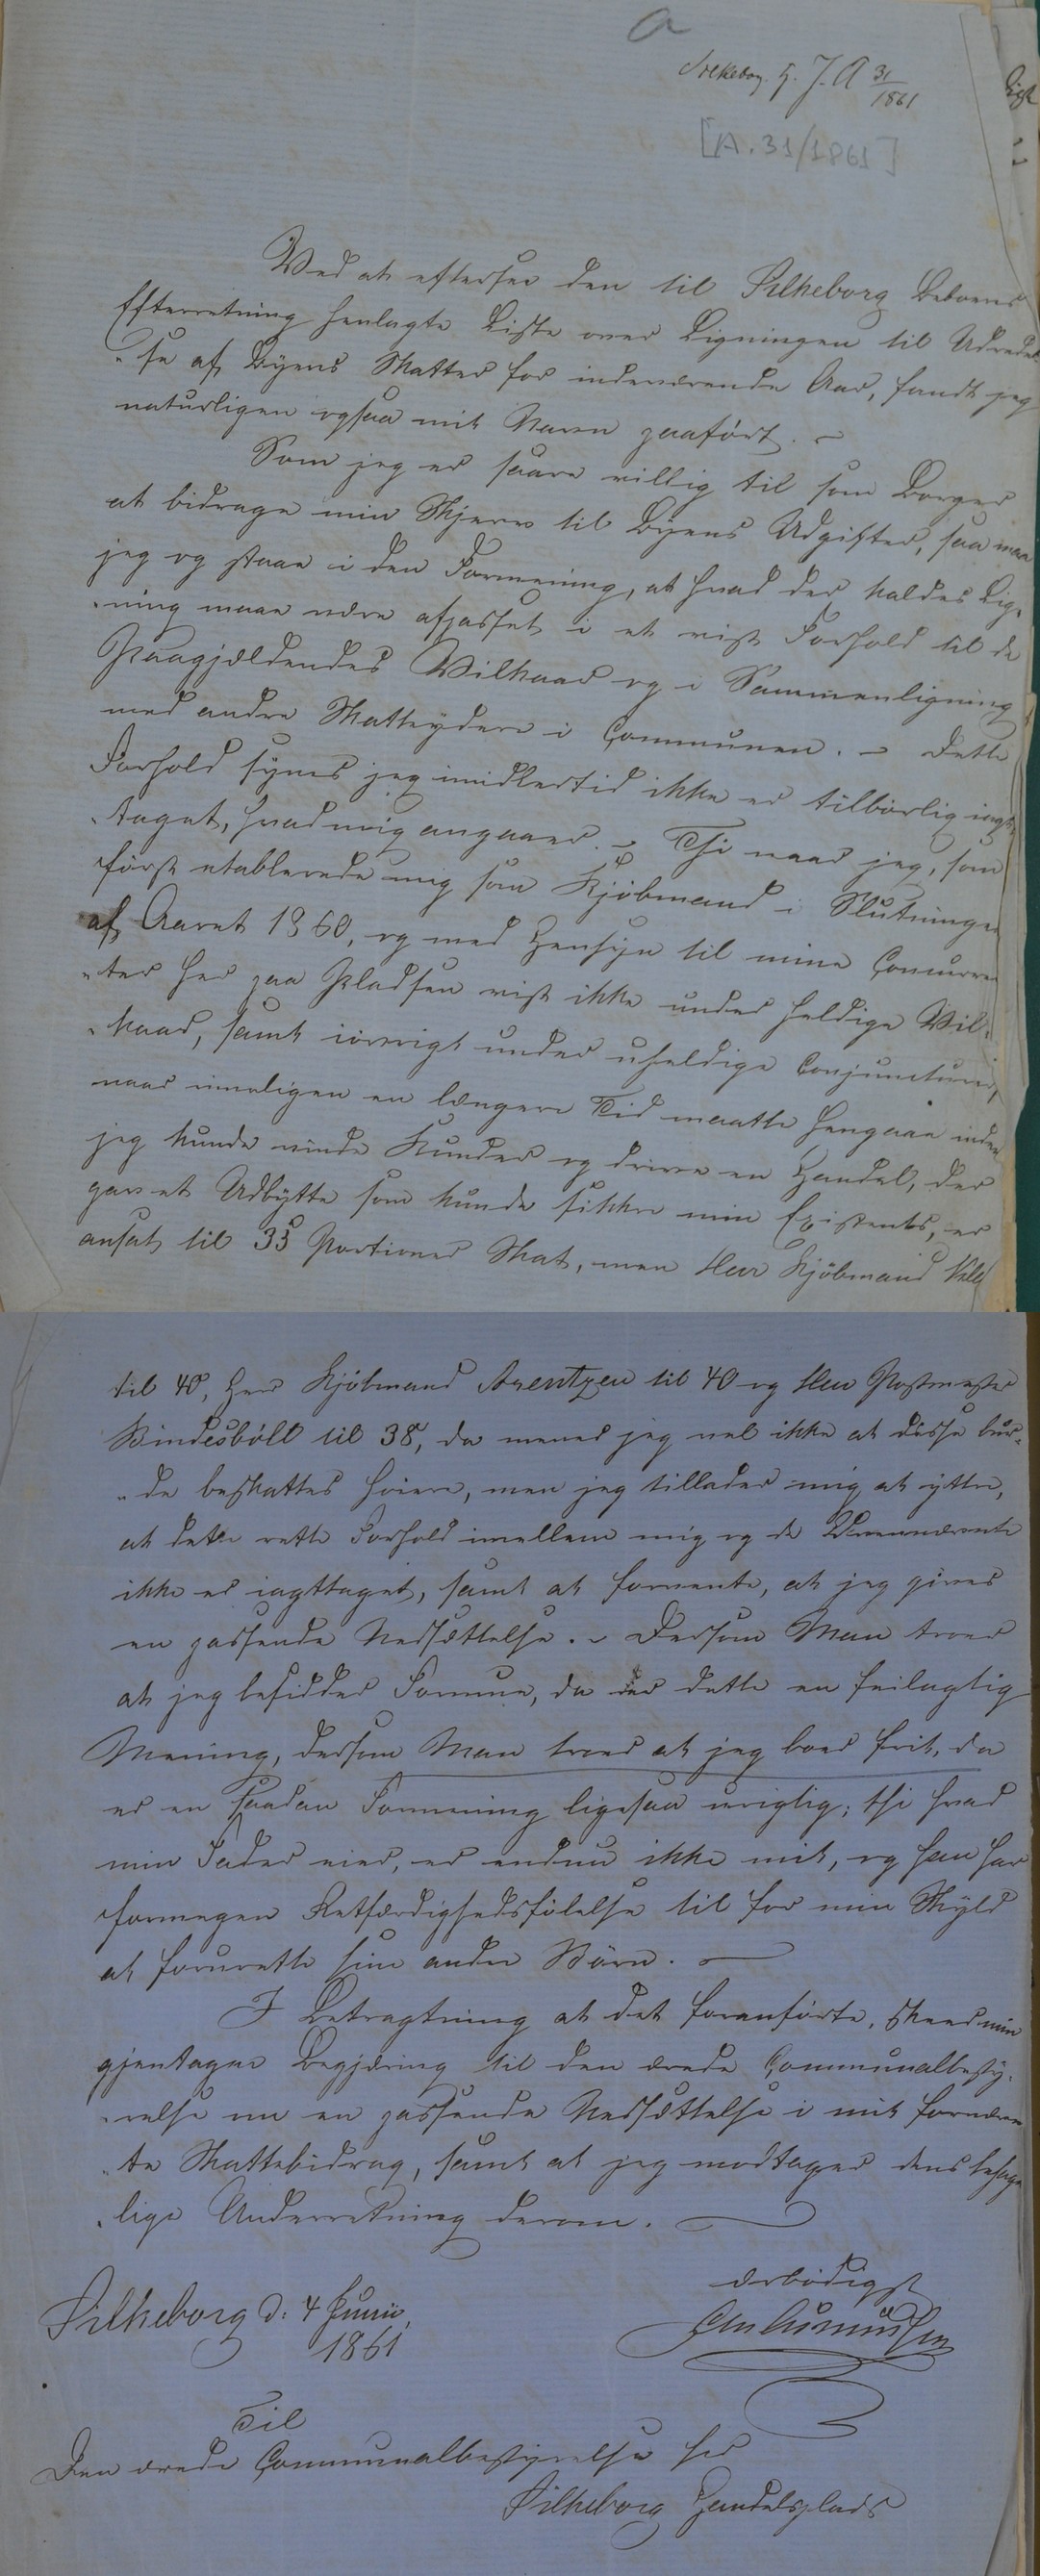 a
Silkeborg. H. J. A 31/1861
[A. 31/1861]
Ved at eftersee den til Silkeborg Beboeres
Efterretning henlagte Liste over Ligningen til Udredel-
-se af Byens Skatter for indeværende Aar, fandt jeg
naturligen ogsaa mit Navn paaført. -
Som jeg er saare villig til som Borger
at bidrage min Skjerv til Byens Udgifter, saa maa
jeg og staae i den Formening, at hvad der kaldes Lig-
-ning maae være afpasset i et vist Forhold til de
Paagjældendes Vilkaar og i Sammenligning
med andre Skatteydere i Communen. - Dette
Forhold synes jeg imidlertid ikke er tilbørlig iagt-
-taget, hvad mig angaaer. - Thi naar jeg, som
først etablerede mig som Kjøbmand i Slutningen
af Aaret 1860, og med Hensyn til mine Concurren
-ter her paa Pladsen vist ikke under heldige Vil-
-kaar, samt iøvrigt under uheldige Conjuncturer,
naar rimeligen en længere Tid maatte hengaae inden
jeg kunde vinde Kunder og drive en Handel, der
gav et Udbytte som kunde sikkre min Existents, er
ansat til 35 Portioner Skat, men Herr Kjøbmand
til 40, Herr Kjöbmand Arentzen til 40 og Herr Postmester
Bindesböll til 38, da mener jeg vel ikke at disse bur-
-de beskattes høiere, men jeg tillader mig at yttre,
at dette rette Forhold imellem mig og de Ovennævnte
ikke er iagttaget, samt at forvente, at jeg gives
en passende Nedsættelse. - Dersom Man troer
at jeg besidder Formue, da er dette en feilagtig
Mening, dersom Man troer at jeg boer frit, da
er en saadan Formening ligesaa urigtig; thi hvad
min Fader eier, er endnu ikke mit, og han har
formegen Retfærdighedsfølelse til for min Skyld
at forurette sine andre Børn. -
I Betragtning at det foranførte, skeer min
gjentagne Begjæring til den ærede Communalbesty-
-relse om en passende Nedsættelse i mit fornævn
-te Skattebidrag, samt at jeg modtager dens behage
-lige Underretning derom. -
ærbødigst
Silkeborg d: 4 Junii,
1861
Til
Den ærede Communalbestyrelse for
Silkeborg Handelsplads